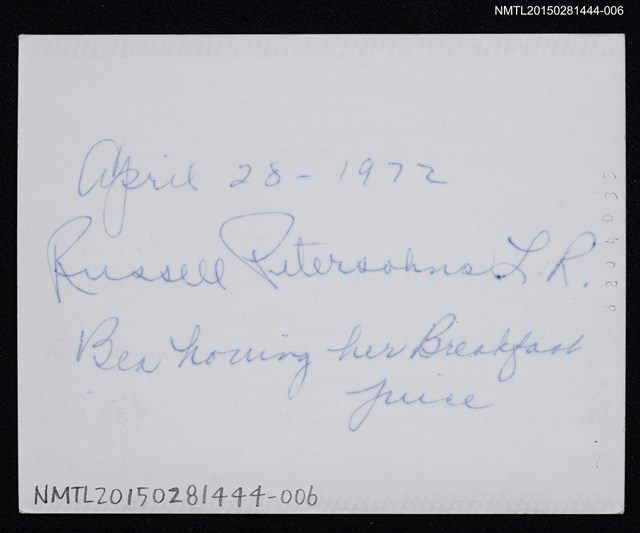 NMTL20150281444-006
April 28 - 1972
Russell Petersohns L.R.
Bea having her Breakfast
juice
NMTL20150281444-006